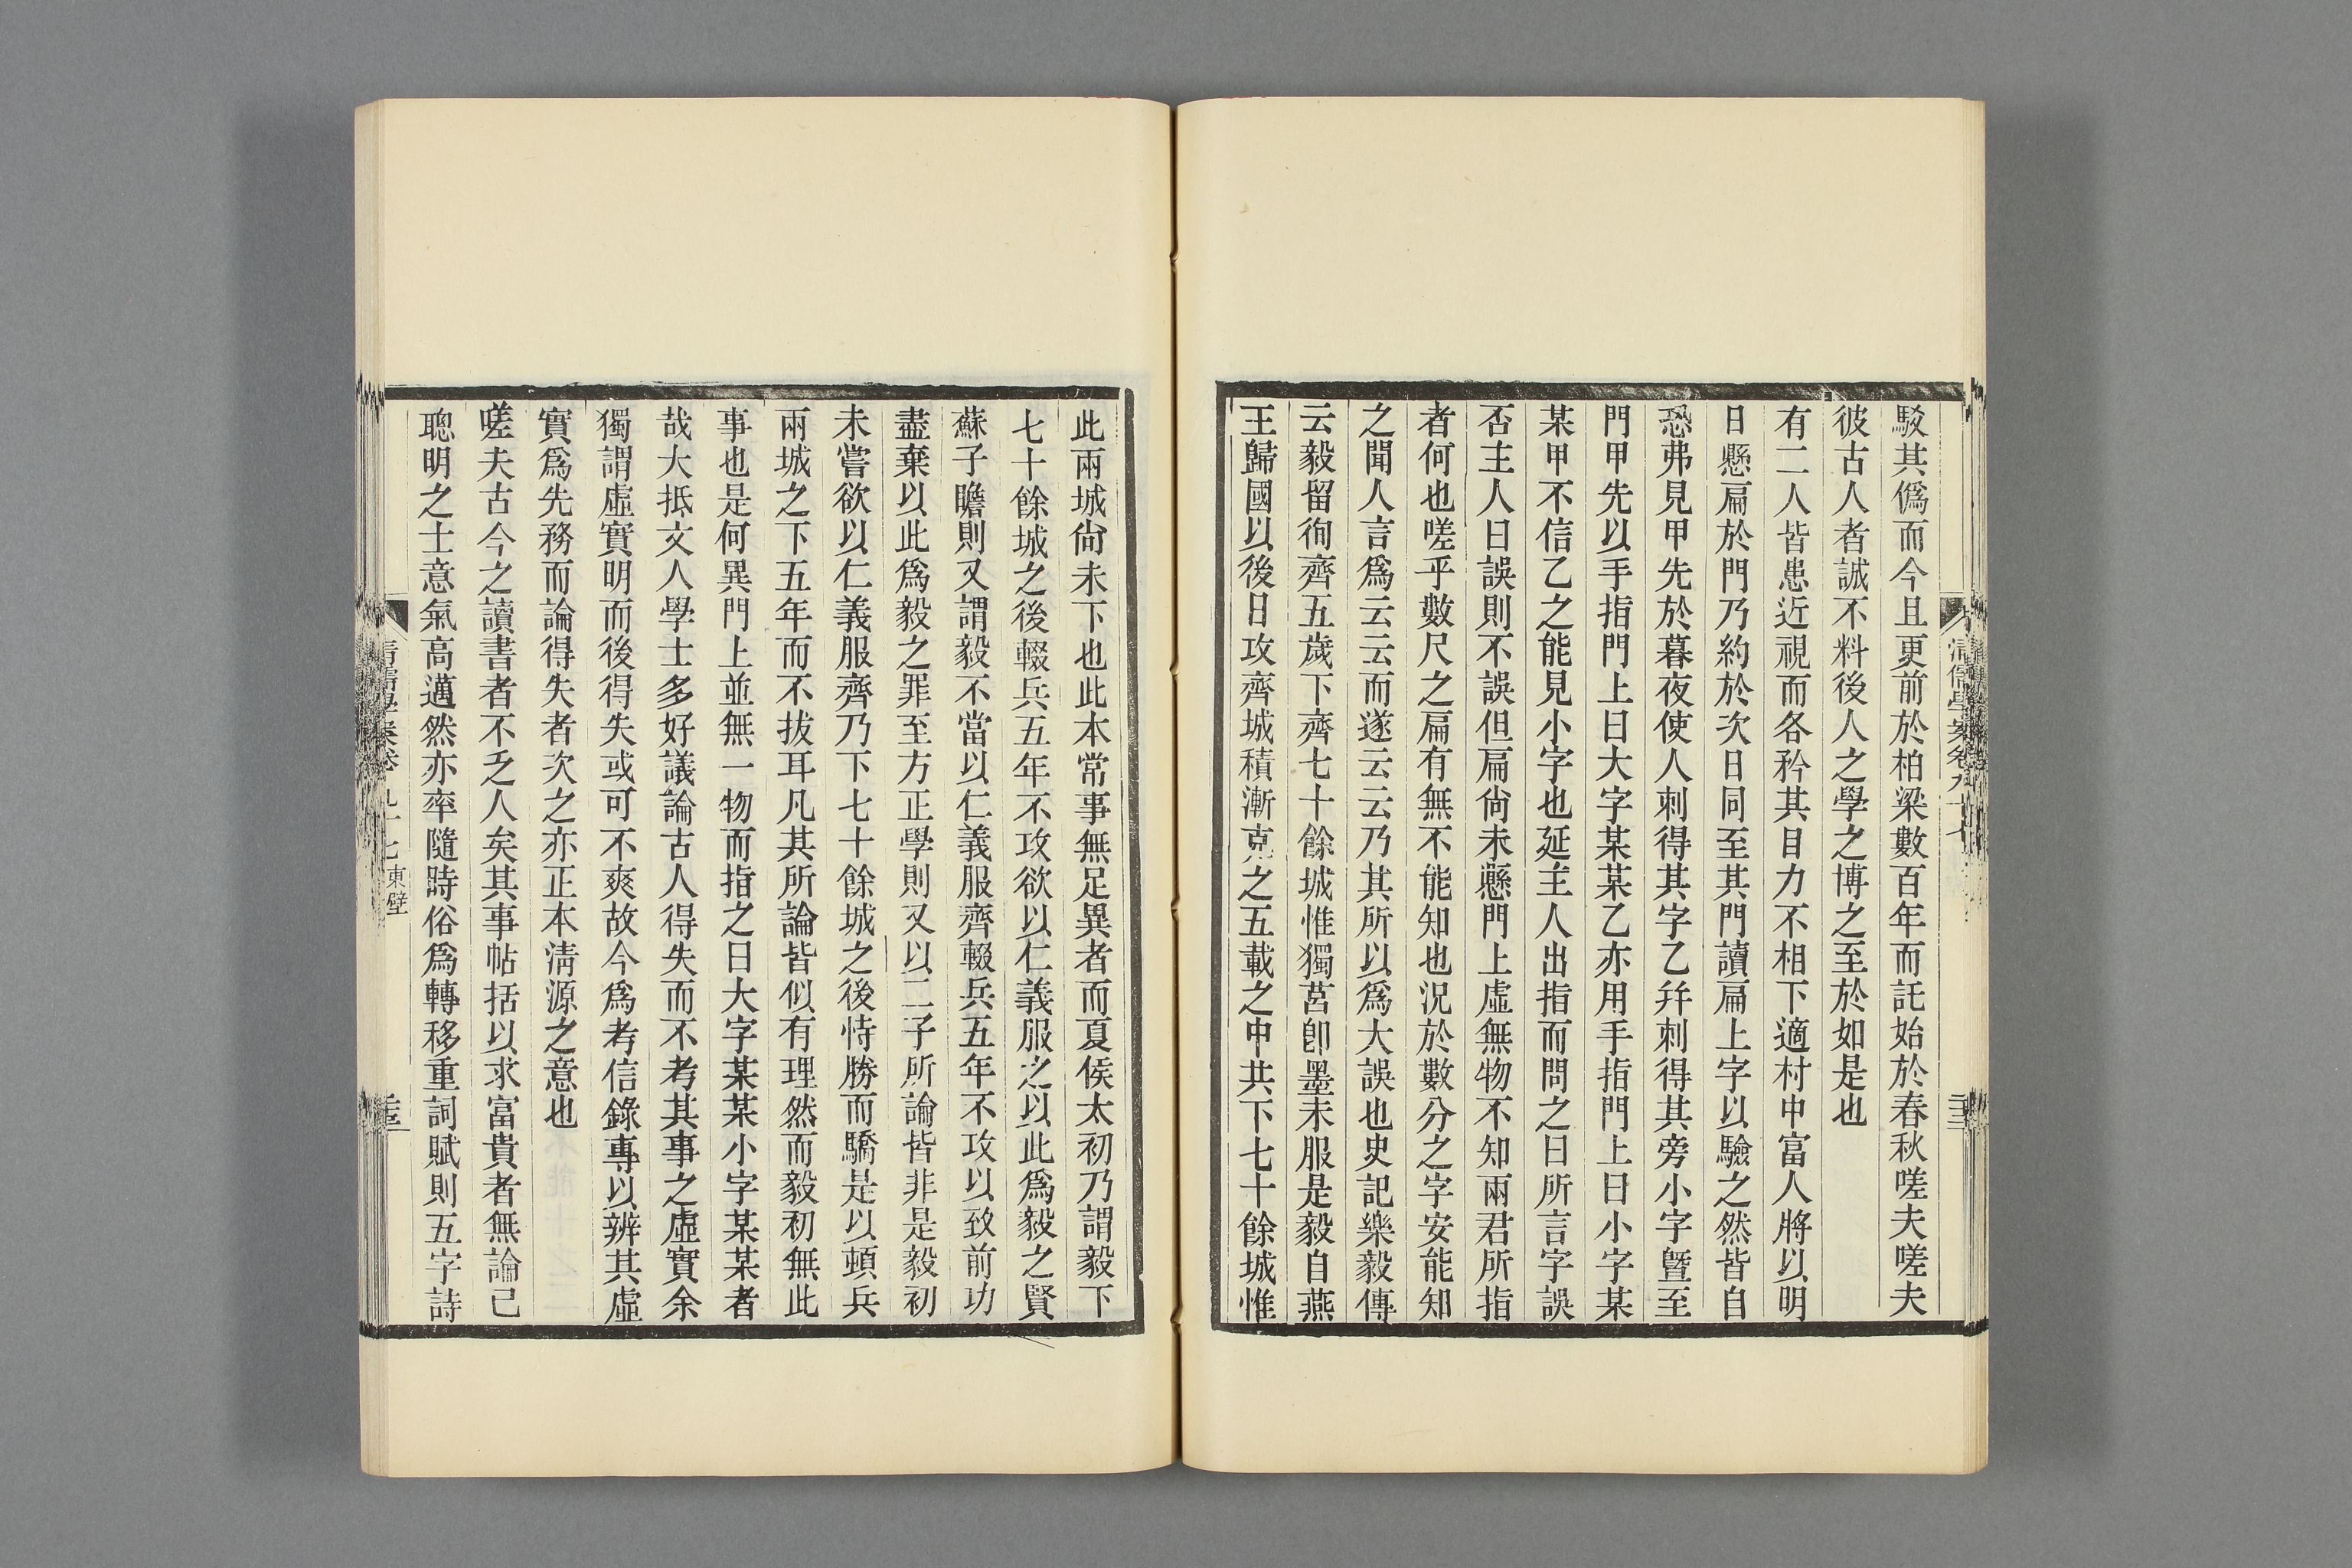 駁其僞而今且更前於柏梁數百年而託始於春秋嗟夫嗟夫
彼古人者誠不料後人之學之博之至於如是也
有二人皆患近視而各矜其目力不相下適村中富人將以明
日懸扁於門乃約於次日同至其門讀扁上字以驗之然皆自
恐弗見甲先於暮夜使人刺得其字乙幷刺得其旁小字曁至
門甲先以手指門上曰大字某某乙亦用手指門上曰小字某
某甲不信乙之能見小字也延主人出指而問之曰所言字誤
否主人曰誤則不誤但扁尙未懸門上虛無物不知兩君所指
者何也嗟乎數尺之扁有無不能知也況於數分之字安能知
之聞人言爲云云而遂云云乃其所以爲大誤也史記樂毅傳
云毅留徇齊五歲下齊七十餘城惟獨莒卽墨未服是毅自燕
王歸國以後日攻齊城積漸克之五載之中共下七十餘城惟
此兩城尙未下也此本常事無足異者而夏侯太初乃謂毅下
七十餘城之後輟兵五年不攻欲以仁義服之以此爲毅之賢
蘇子瞻則又謂毅不當以仁義服齊輟兵五年不攻以致前功
盡棄以此爲毅之罪至方正學則又以二子所論皆非是毅初
未嘗欲以仁義服齊乃下七十餘城之後恃勝而驕是以頓兵
兩城之下五年而不拔耳凡其所論皆似有理然而毅初無此
事也是何異門上並無一物而指之曰大字某某小字某某者
哉大抵文人學士多好議論古人得失而不考其事之虛實余
獨謂虛實明而後得失或可不爽故今爲考信錄專以辨其虛
實爲先務而論得失者次之亦正本淸源之意也
嗟夫古今之讀書者不乏人矣其事帖括以求富貴者無論已
聰明之士意氣高邁然亦率隨時俗爲轉移重詞賦則五字詩
淸儒學案卷九十七 東壁